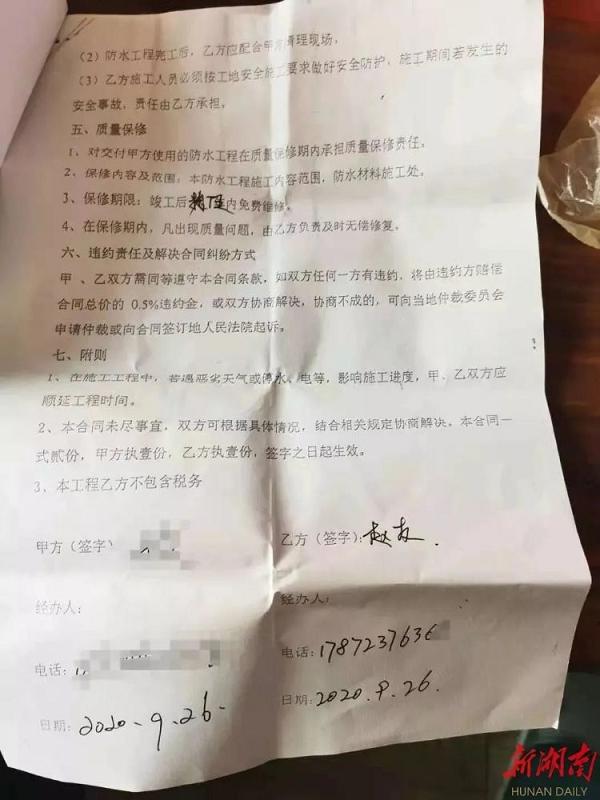 （2）防水工程完工后，乙方应配合甲方清理现场，
（3）乙方施工人员必须按工地安全施工要求做好安全防护，施工期间若发生的
安全事故，责任由乙方承担。
五、质量保修
1、对交付甲方使用的防水工程在质量保修期内承担质量保修责任。
2、保修内容及范围：本防水工程施工内容范围，防水材料施工处。
3、保修期限：竣工后 内免费维修。
4、在保修期内，凡出现质量问题，由乙方负责及时无偿修复。
六、违约责任及解决合同纠纷方式
甲、乙双方需同等遵守本合同条款，如双方任何一方有违约，将由违约方赔偿
合同总价的 0.5%违约金，或双方协商解决，协商不成的，可向当地仲裁委员会
申请仲裁或向合同签订地人民法院起诉。
七、附则
1、在施工工程中，若遇恶劣天气或停水、电等，影响施工进度，甲、乙双方应
顺延工程时间。
2、本合同未尽事宜，双方可根据具体情况，结合相关规定协商解决。本合同一
式贰份，甲方执壹份，乙方执壹份，签字之日起生效。
3、本工程乙方不包含税务
甲方（签字）
乙方（签字）：赵友
经办人：
经办人：
电话：
电话：1787237636
日期：2020.9.26.
日期：2020.9.26
新湖南
HUNAN DAILY